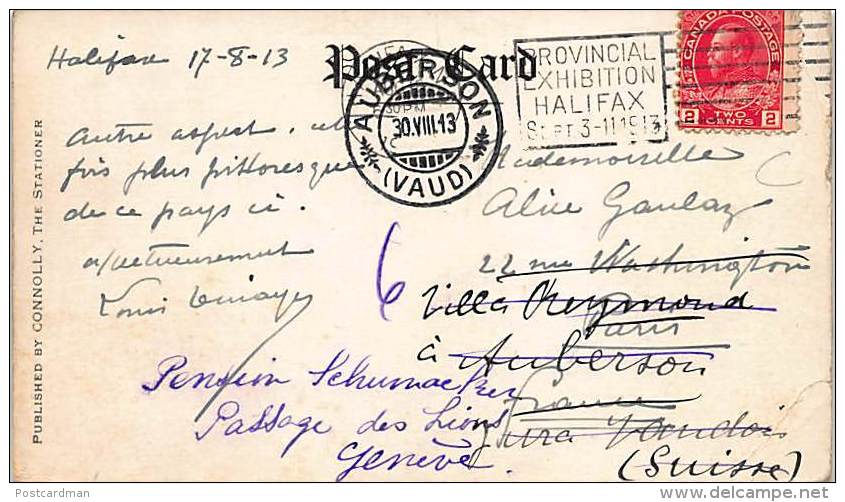 Post Card
Halifax 17-8-13
Autre aspect, cette
fois plus pittoresque
de ce pays ci.
affectueusement
Louis
PUBLISHED BY CONNOLLY, THE STATIONER
AUBERSON
30.VIII.13
(VAUD)
PROVINCIAL
EXHIBITION
HALIFAX
SEPT 3-11 1913
CANADA POSTAGE
2 TWO CENTS 2
Mademoiselle
Alice
22 rue Washington
Paris
France
Villa Reymond
à Auberson
Jura Vaudois
(Suisse)
6
Pension Schumacker
Passage des Lions
Genève.
Postcardman
www.delcampe.net